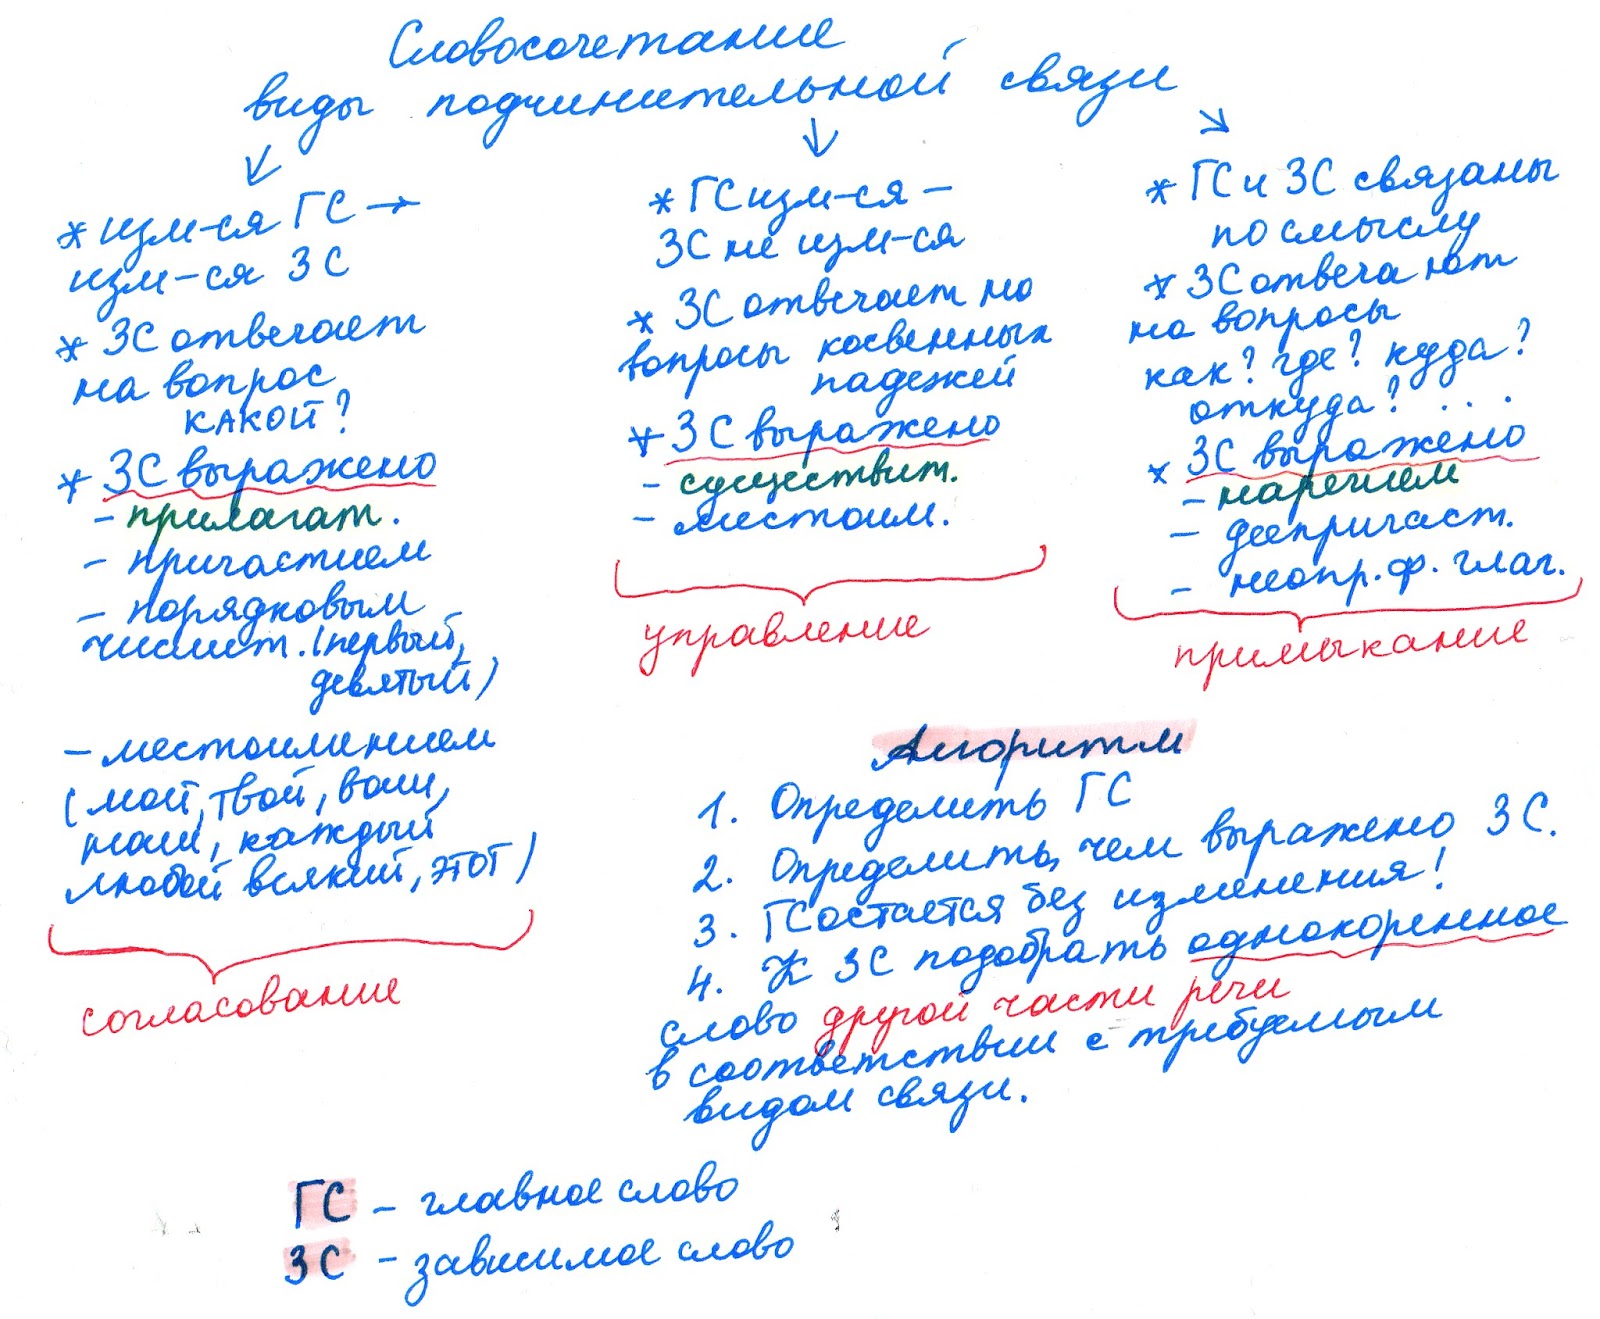 Словосочетание
виды подчинительной связи
* изм-ся ГС →
изм-ся ЗС
* ЗС отвечает
на вопрос
КАКОЙ?
* ЗС выражено
- прилагат.
- причастием
- порядковым
числит. (первый,
девятый)
- местоимением
(мой, твой, ваш,
наш, каждый
любой всякий, этот)
согласование
* ГС изм-ся -
ЗС не изм-ся
* ЗС отвечает на
вопросы косвенных
падежей
* ЗС выражено
- существит.
- местоим.
управление
* ГС и ЗС связаны
по смыслу
* ЗС отвечают
на вопросы
как? где? куда?
откуда? ...
* ЗС выражено
- наречием
- деепричаст.
- неопр. ф. глаг.
примыкание
Алгоритм
1. Определить ГС
2. Определить, чем выражено ЗС.
3. ГС остается без изменения!
4. К ЗС подобрать однокоренное
слово другой части речи
в соответствии с требуемым
видом связи.
ГС - главное слово
ЗС - зависимое слово